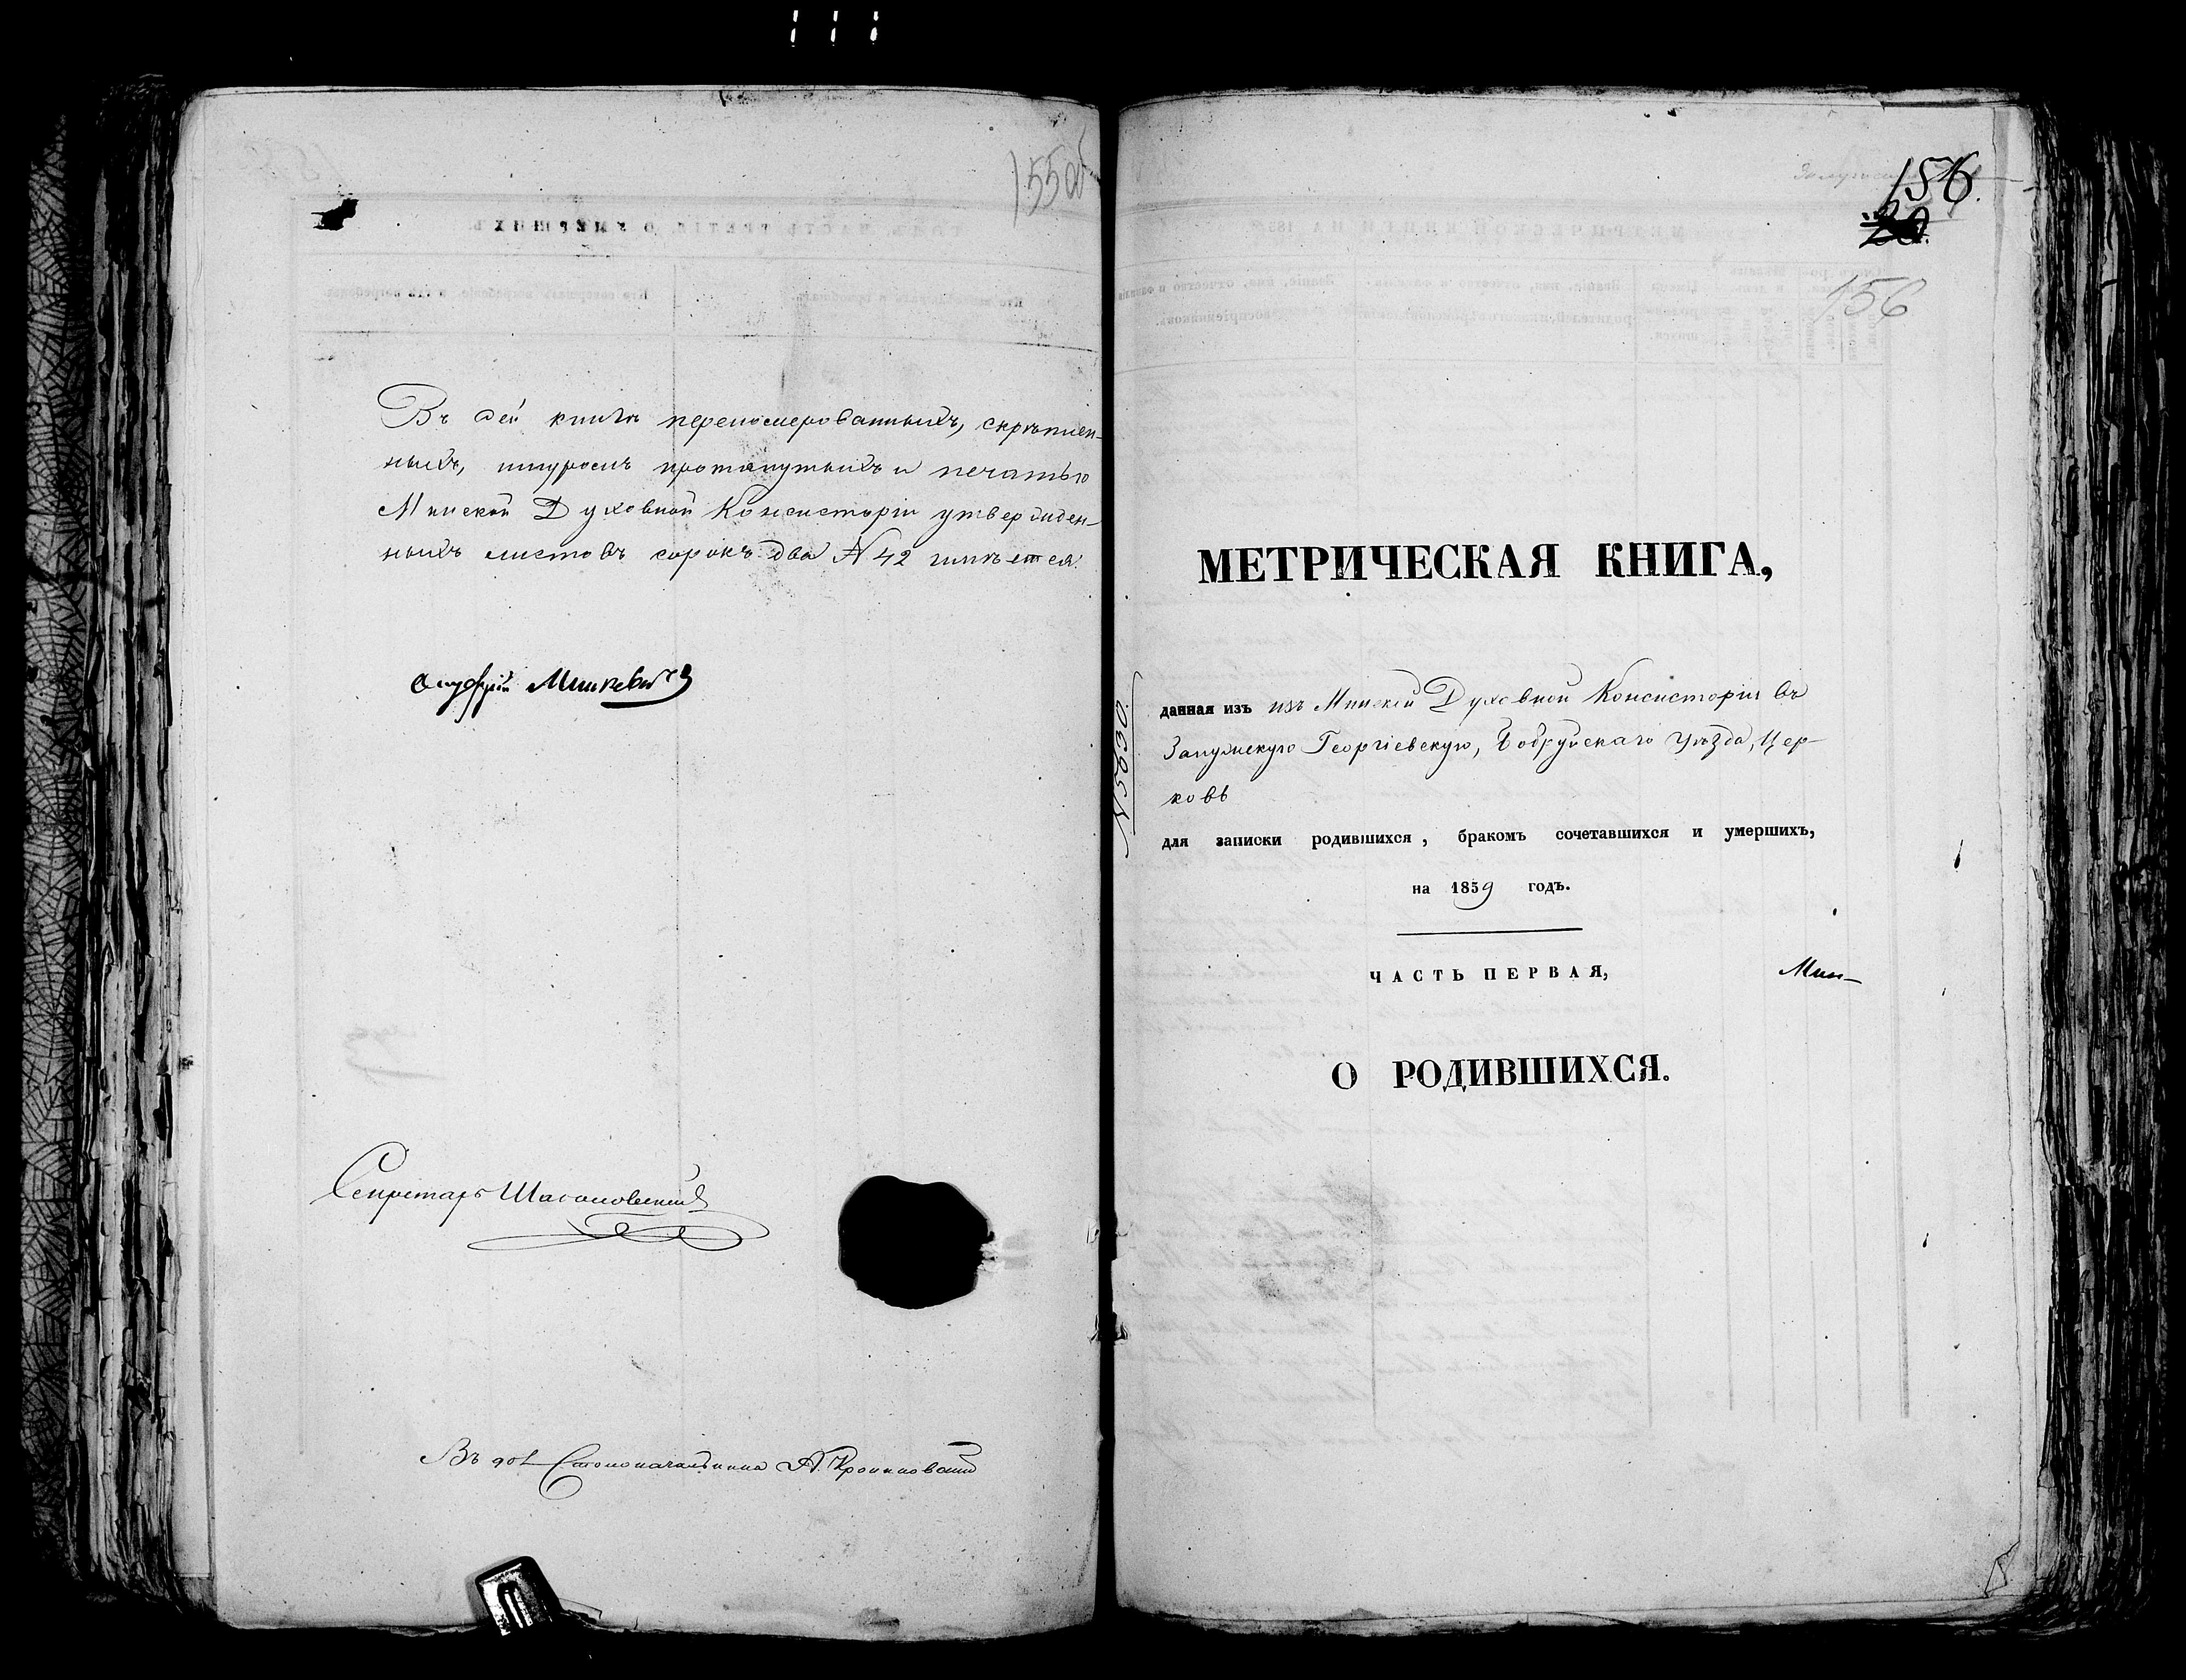 155 об
Въ сей книгѣ перепомерованныхъ, скрѣплен-
ныхъ, шнуромъ протянутыхъ и печатью
Минской Духовной Консисторіи утвержден-
ныхъ листовъ сорокъ два № 42 имѣется.
Онуфрій Минкевичъ
Секретарь
Въ дол. Столоначальника А.
156.
20.
156
МЕТРИЧЕСКАЯ КНИГА,
№ 5630.
данная изъ изъ Минской Духовной Консисторіи въ
Георгіевскую, Бобруйскаго Уѣзда, Цер-
ковь
для записки родившихся, бракомъ сочетавшихся и умершихъ,
на 1859 годъ.
ЧАСТЬ ПЕРВАЯ,
Мин-
О РОДИВШИХСЯ.